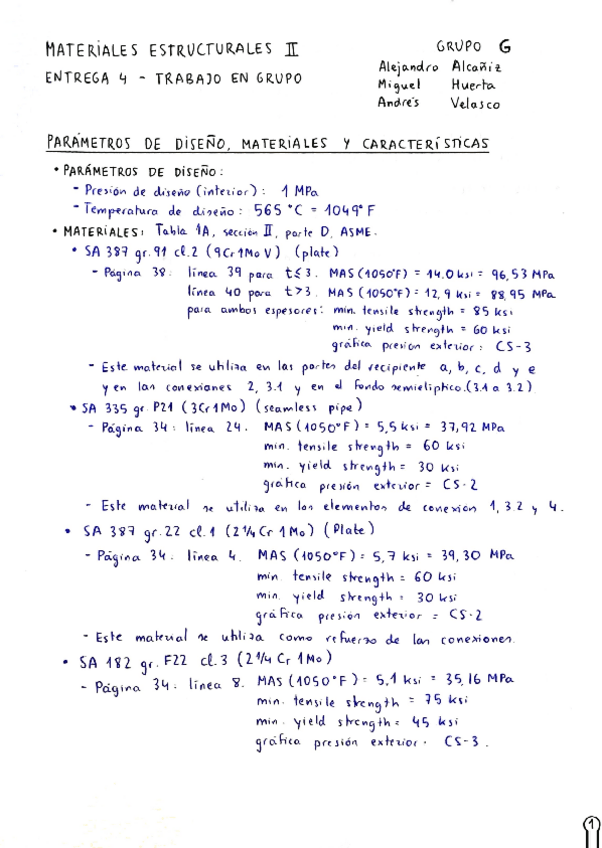 MATERIALES ESTRUCTURALES II
GRUPO G
ENTREGA 4 - TRABAJO EN GRUPO
Alejandro Alcañiz
Miguel Huerta
Andrés Velasco
PARÁMETROS DE DISEÑO, MATERIALES Y CARACTERÍSTICAS
• PARÁMETROS DE DISEÑO:
- Presión de diseño (interior): 1 MPa
- Temperatura de diseño: 565 °C = 1049° F
• MATERIALES: Tabla 1A, sección II, parte D, ASME.
• SA 387 gr. 91 cl. 2 (9Cr 1Mo V) (plate)
- Página 38: línea 39 para t≤3. MAS (1050°F) = 14.0 ksi = 96,53 MPa
línea 40 para t>3. MAS (1050°F) = 12,9 ksi = 88,95 MPa
para ambos espesores: min. tensile strength = 85 ksi
min. yield strength = 60 ksi
gráfica presión exterior: CS-3
- Este material se utiliza en las partes del recipiente a, b, c, d y e
y en las conexiones 2, 3.1 y en el fondo semielíptico. (3.1 a 3.2)
• SA 335 gr. P21 (3Cr 1Mo) (seamless pipe)
- Página 34: línea 24. MAS (1050°F) = 5,5 ksi = 37,92 MPa
min. tensile strength = 60 ksi
min. yield strength = 30 ksi
gráfica presión exterior = CS-2
- Este material se utiliza en los elementos de conexión 1, 3.2 y 4.
• SA 387 gr. 22 cl. 1 (2 1/4 Cr 1Mo) (Plate)
- Página 34: línea 4. MAS (1050°F) = 5,7 ksi = 39,30 MPa
min. tensile strength = 60 ksi
min. yield strength = 30 ksi
gráfica presión exterior = CS-2
- Este material se utiliza como refuerzo de las conexiones.
• SA 182 gr. F22 cl. 3 (2 1/4 Cr 1Mo)
- Página 34: línea 8. MAS (1050°F) = 5,1 ksi = 35,16 MPa
min. tensile strength = 75 ksi
min. yield strength = 45 ksi
gráfica presión exterior. CS-3.
1